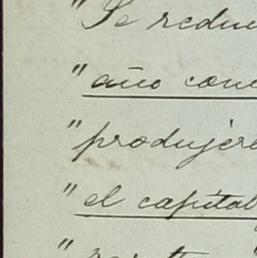 "Se redu
"año con
"produjer
"el capital
"